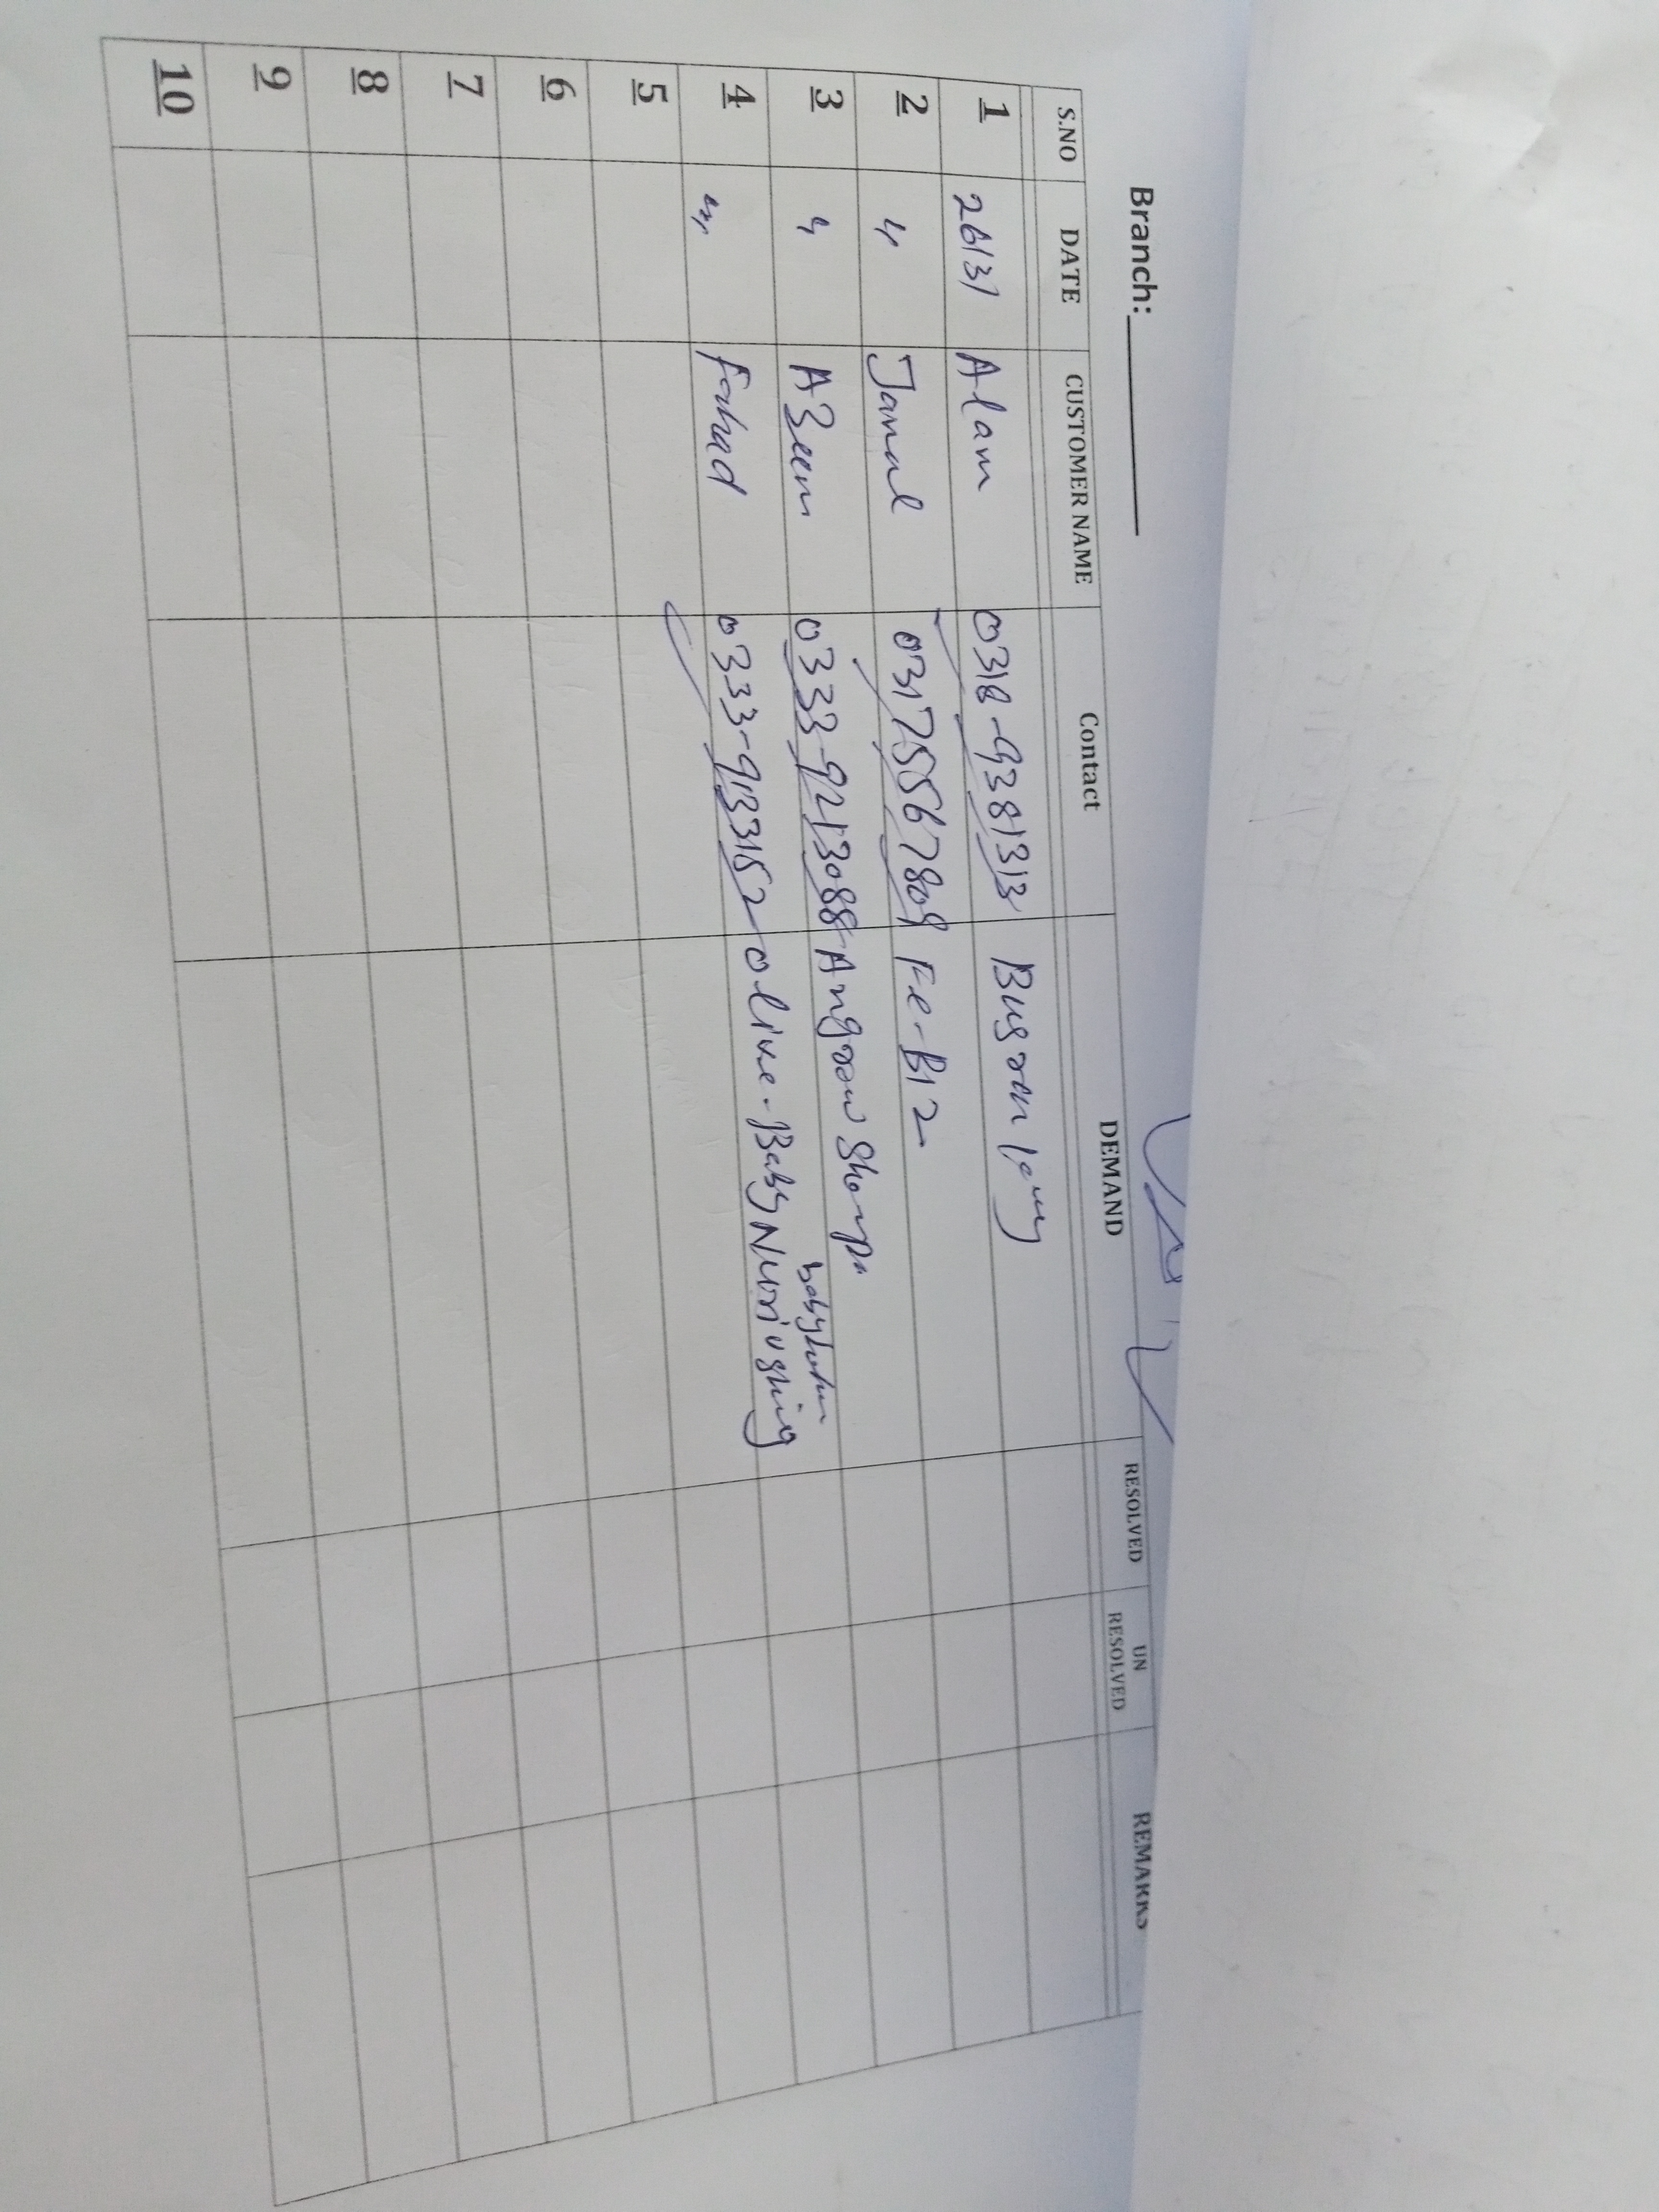 Branch:
S.NO DATE CUSTOMER NAME Contact DEMAND RESOLVED UN RESOLVED REMARKS
1 Alam 0318-9381313 Bugran
2 〃 Jamal 03175567809 Fe-B12
3 〃 A3eem 0333-9213088 Angrow
4 〃 Fahad 0333-9133152 olive-Baby Nuriushing
5
6
7
8
9
10